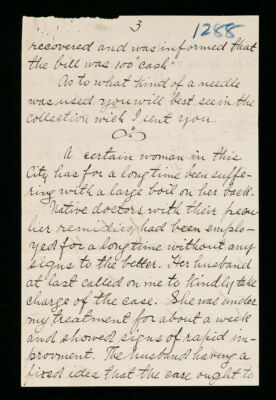 3
1288
recovered and was informed that
the bill was 100 cash"
As to what kind of a needle
was used you will best see in the
collection wich I sent you.
A certain woman in this
City has for a long time been suffe-
ring with a large boil on her back.
Native doctors with their pecu-
lier remidies had been emplo-
yed for a long time without any
signs to the better. Her husband
at last called on me to kindly take
charge of the case. She was under
my treatment for about a week
and showed signs of rapid im-
provment. The husband having a
fixed idea that the case ought to